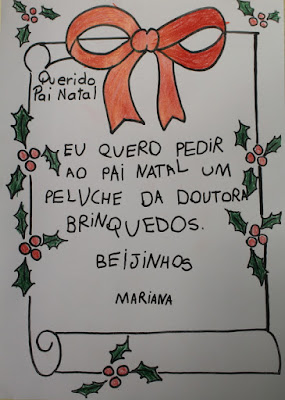 Querido
Pai Natal
EU QUERO PEDIR
AO PAI NATAL UM
PELUCHE DA DOUTORA
BRINQUEDOS.
BEIJINHOS
MARIANA